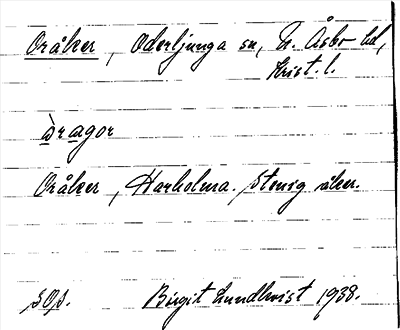 Oråker, Oderljunga sn, N. Åsbo hd,
Krist. l.
àragor
Oråker, Harholma. Stenig åker.
SOS. Birgit Lundkvist 1938.